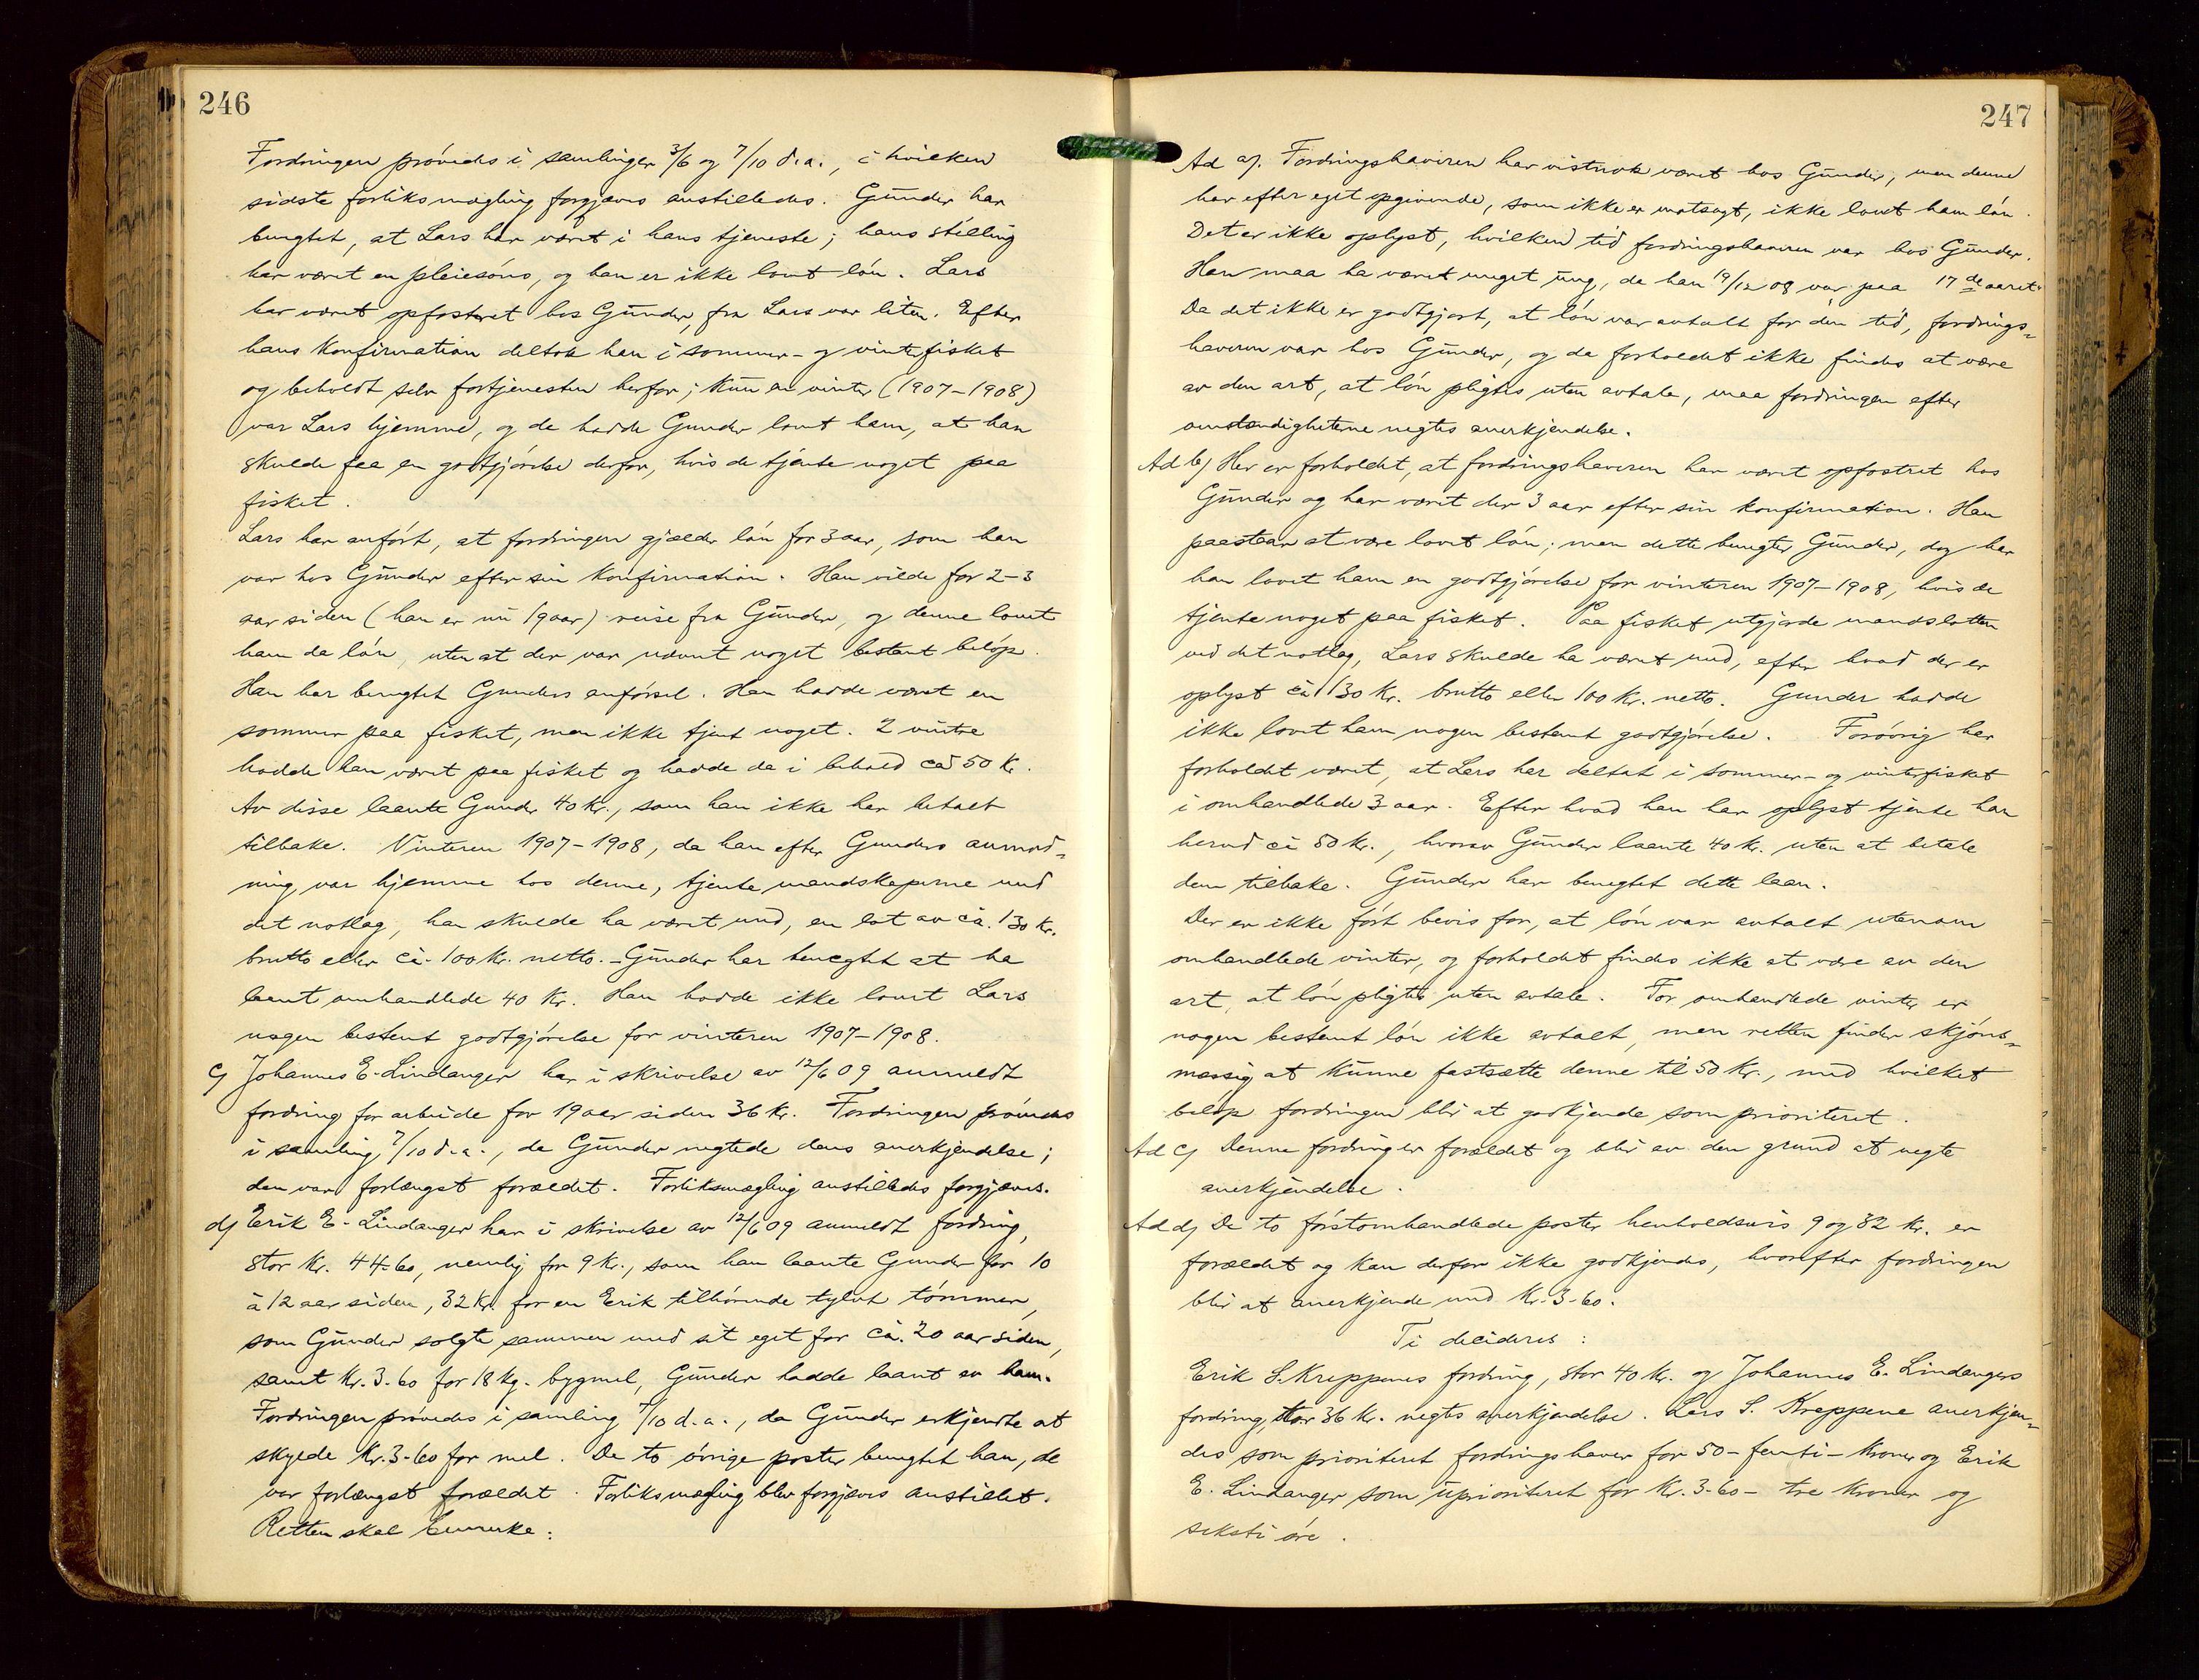 246
Fordringen prøvedes i samlinger 3/6 og 7/10 d.a., i hvilken
sidste forliksmægling forgjæves anstilledes. Gunder har
benegtet, at Lars har været i hans tjeneste; hans stilling
har været en pleiesøns, og han er ikke lovet løn. Lars
har været opfostret hos Gunder, fra Lars var liten. Efter
hans konfirmation deltok han i sommer- og vinterfisket
og beholdt selv fortjenesten herfor; kun en vinter (1907-1908)
var Lars hjemme, og da hadde Gunder lovet ham, at han
skulde faa en godtgjørelse derfor, hvis de tjente noget paa
fisket.
Lars har anført, at fordringen gjælder løn for 3 aar, som han
var hos Gunder efter sin konfirmation. Han vilde for 2-3
aar siden (han er nu 19 aar) reise fra Gunder, og denne lovet
ham da løn, uten at der var nævnt noget bestemt beløp.
Han har benegtet Gunders anførsel. Han hadde været en
sommer paa fisket, men ikke tjent noget. 2 vintre
hadde han været paa fisket og hadde da i behold ca 50 Kr.
Av disse laante Gunder 40 Kr., som han ikke har betalt
tilbake. Vinteren 1907-1908, da han efter Gunders anmod-
ning var hjemme hos denne, tjente mandskaperne med
det notlag, han skulde ha været med, en lot av ca. 130 Kr.
brutto eller ca. 100 Kr. netto. - Gunder har benegtet at ha
laant omhandlede 40 Kr. Han hadde ikke lovet Lars
nogen bestemt godtgjørelse for vinteren 1907-1908.
c) Johannes E. Lindanger har i skrivelse av 12/6 09 anmeldt
fordring for arbeide for 19 aar siden 36 Kr. Fordringen prøvedes
i samling 7/10 d.a., da Gunder negtede dens anerkjendelse;
den var forlængst forældet. Forliksmægling anstilledes forgjæves.
d) Erik E. Lindanger har i skrivelse av 12/6 09 anmeldt fordring,
stor Kr. 44-60, nemlig for 9 Kr., som han laante Gunder for 10
à 12 aar siden, 32 Kr. for en Erik tilhørende tylvt tømmer,
som Gunder solgte sammen med sit eget for ca. 20 aar siden,
samt Kr. 3.60 for 18 kg. bygmel, Gunder hadde laant av ham.
Fordringen prøvedes i samling 7/10 d.a., da Gunder erkjendte at
skylde Kr. 3-60 for mel. De to øvrige poster benegtet han, de
var forlængst forældet. Forliksmægling blev forgjæves anstillet.
Retten skal bemerke:
247
Ad a). Fordringshaveren har vistnok været hos Gunder, men denne
har efter eget opgivende, som ikke er motsagt, ikke lovet ham løn.
Det er ikke oplyst, hvilken tid fordringshaveren var hos Gunder.
Han maa ha været meget ung, da han 19/12 08 var paa 17de aaret.
Da det ikke er godtgjort, at løn var avtalt for den tid, fordrings-
haveren var hos Gunder, og da forholdet ikke findes at være
av den art, at løn pligtes uten avtale, maa fordringen efter
omstændigheterne negtes anerkjendelse.
Ad b) Her er forholdet, at fordringshaveren har været opfostret hos
Gunder og har været der 3 aar efter sin konfirmation. Han
paastaar at være lovet løn; men dette benegter Gunder, dog har
han lovet ham en godtgjørelse for vinteren 1907-1908, hvis de
tjente noget paa fisket. Paa fisket utgjorde mandslotten
ved det notlag, Lars skulde ha været med, efter hvad der er
oplyst ca 130 Kr. brutto eller 100 Kr. netto. Gunder hadde
ikke lovet ham nogen bestemt godtgjørelse. Forøvrig har
forholdet været, at Lars har deltat i sommer- og vinterfisket
i omhandlede 3 aar. Efter hvad han har oplyst tjente han
herved ca 50 Kr., hvorav Gunder laante 40 Kr. uten at betale
dem tilbake. Gunder har benegtet dette laan.
Der er ikke ført bevis for, at løn var avtalt utenom
omhandlede vinter, og forholdet findes ikke at være av den
art, at løn pligtes uten avtale. For omhandlede vinter er
nogen bestemt løn ikke avtalt, men retten finder skjøns-
mæssig at kunne fastsætte denne til 50 Kr., med hvilket
beløp fordringen blir at godkjende som prioriteret.
Ad c) Denne fordring er forældet og blir av den grund at negte
anerkjendelse.
Ad d) De to førstomhandlede poster henholdsvis 9 og 32 Kr. er
forældet og kan derfor ikke godkjendes, hvorefter fordringen
blir at anerkjende med Kr. 3-60.
Ti decideres:
Erik S. Kreppenes fordring, stor 40 Kr. og Johannes E. Lindangers
fordring, stor 36 Kr. negtes anerkjendelse. Lars S. Kreppene anerkjen-
des som prioriteret fordringshaver for 50 - femti - Kroner og Erik
E. Lindanger som uprioriteret for Kr. 3-60 - tre Kroner og
seksti øre.